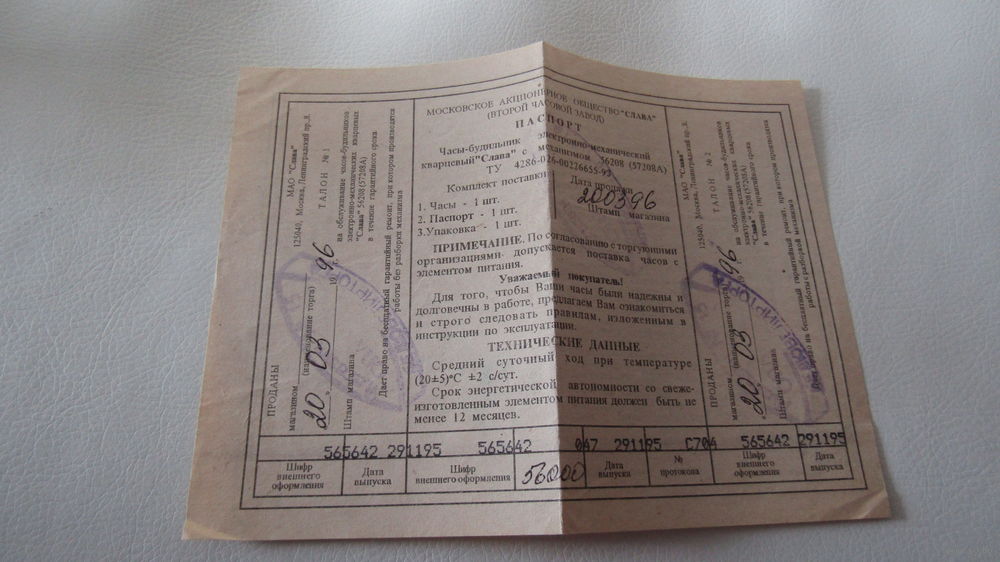 МОСКОВСКОЕ АКЦИОНЕРНОЕ ОБЩЕСТВО "СЛАВА"
(ВТОРОЙ ЧАСОВОЙ ЗАВОД)
ПАСПОРТ
Часы-будильник электронно-механический
кварцевый "Слава" с механизмом 56208 (57208А)
ТУ 4286-026-00226655-93
Комплект поставки
1. Часы - 1 шт.
2. Паспорт - 1 шт.
3.Упаковка - 1 шт.
Дата продажи
200396
Штамп магазина
ПРИМЕЧАНИЕ. По согласованию с торгующими
организациями- допускается поставка часов с
элементом питания.
Уважаемый покупатель!
Для того, чтобы Ваши часы были надежны и
долговечны в работе, предлагаем Вам ознакомиться
и строго следовать правилам, изложенным в
инструкции по эксплуатации.
ТЕХНИЧЕСКИЕ ДАННЫЕ
Средний суточный ход при температуре
(20±5)°С ±2 с/сут.
Срок энергетической автономности со свеже-
изготовленным элементом питания должен быть не
менее 12 месяцев.
МАО "Слава"
125040, Москва, Ленинградский пр.,8.
ТАЛОН № 1
на обслуживание часов-будильников
электронно-механических кварцевых
"Слава" 56208 (57208А)
в течение гарантийного срока
ПРОДАНЫ
магазином (наименование торга)
20 03 1996
Штамп магазина
Дает право на бесплатный гарантийный ремонт, при котором производятся
работы без разборки механизма
МАО "Слава"
125040, Москва, Ленинградский пр.,8.
ТАЛОН № 2
на обслуживание часов-будильников
электронно-механических кварцевых
"Слава" 56208 (57208А)
в течение гарантийного срока
ПРОДАНЫ
магазином (наименование торга)
20 03 96
Штамп магазина
Дает право на бесплатный гарантийный ремонт при котором производятся
работы с разборкой механизма
565642 291195 565642 047 291195 С704 565642 291195
Шифр внешнего оформления
Дата выпуска
Шифр внешнего оформления
56000
Дата выпуска
№ протокола
Шифр внешнего оформления
Дата выпуска